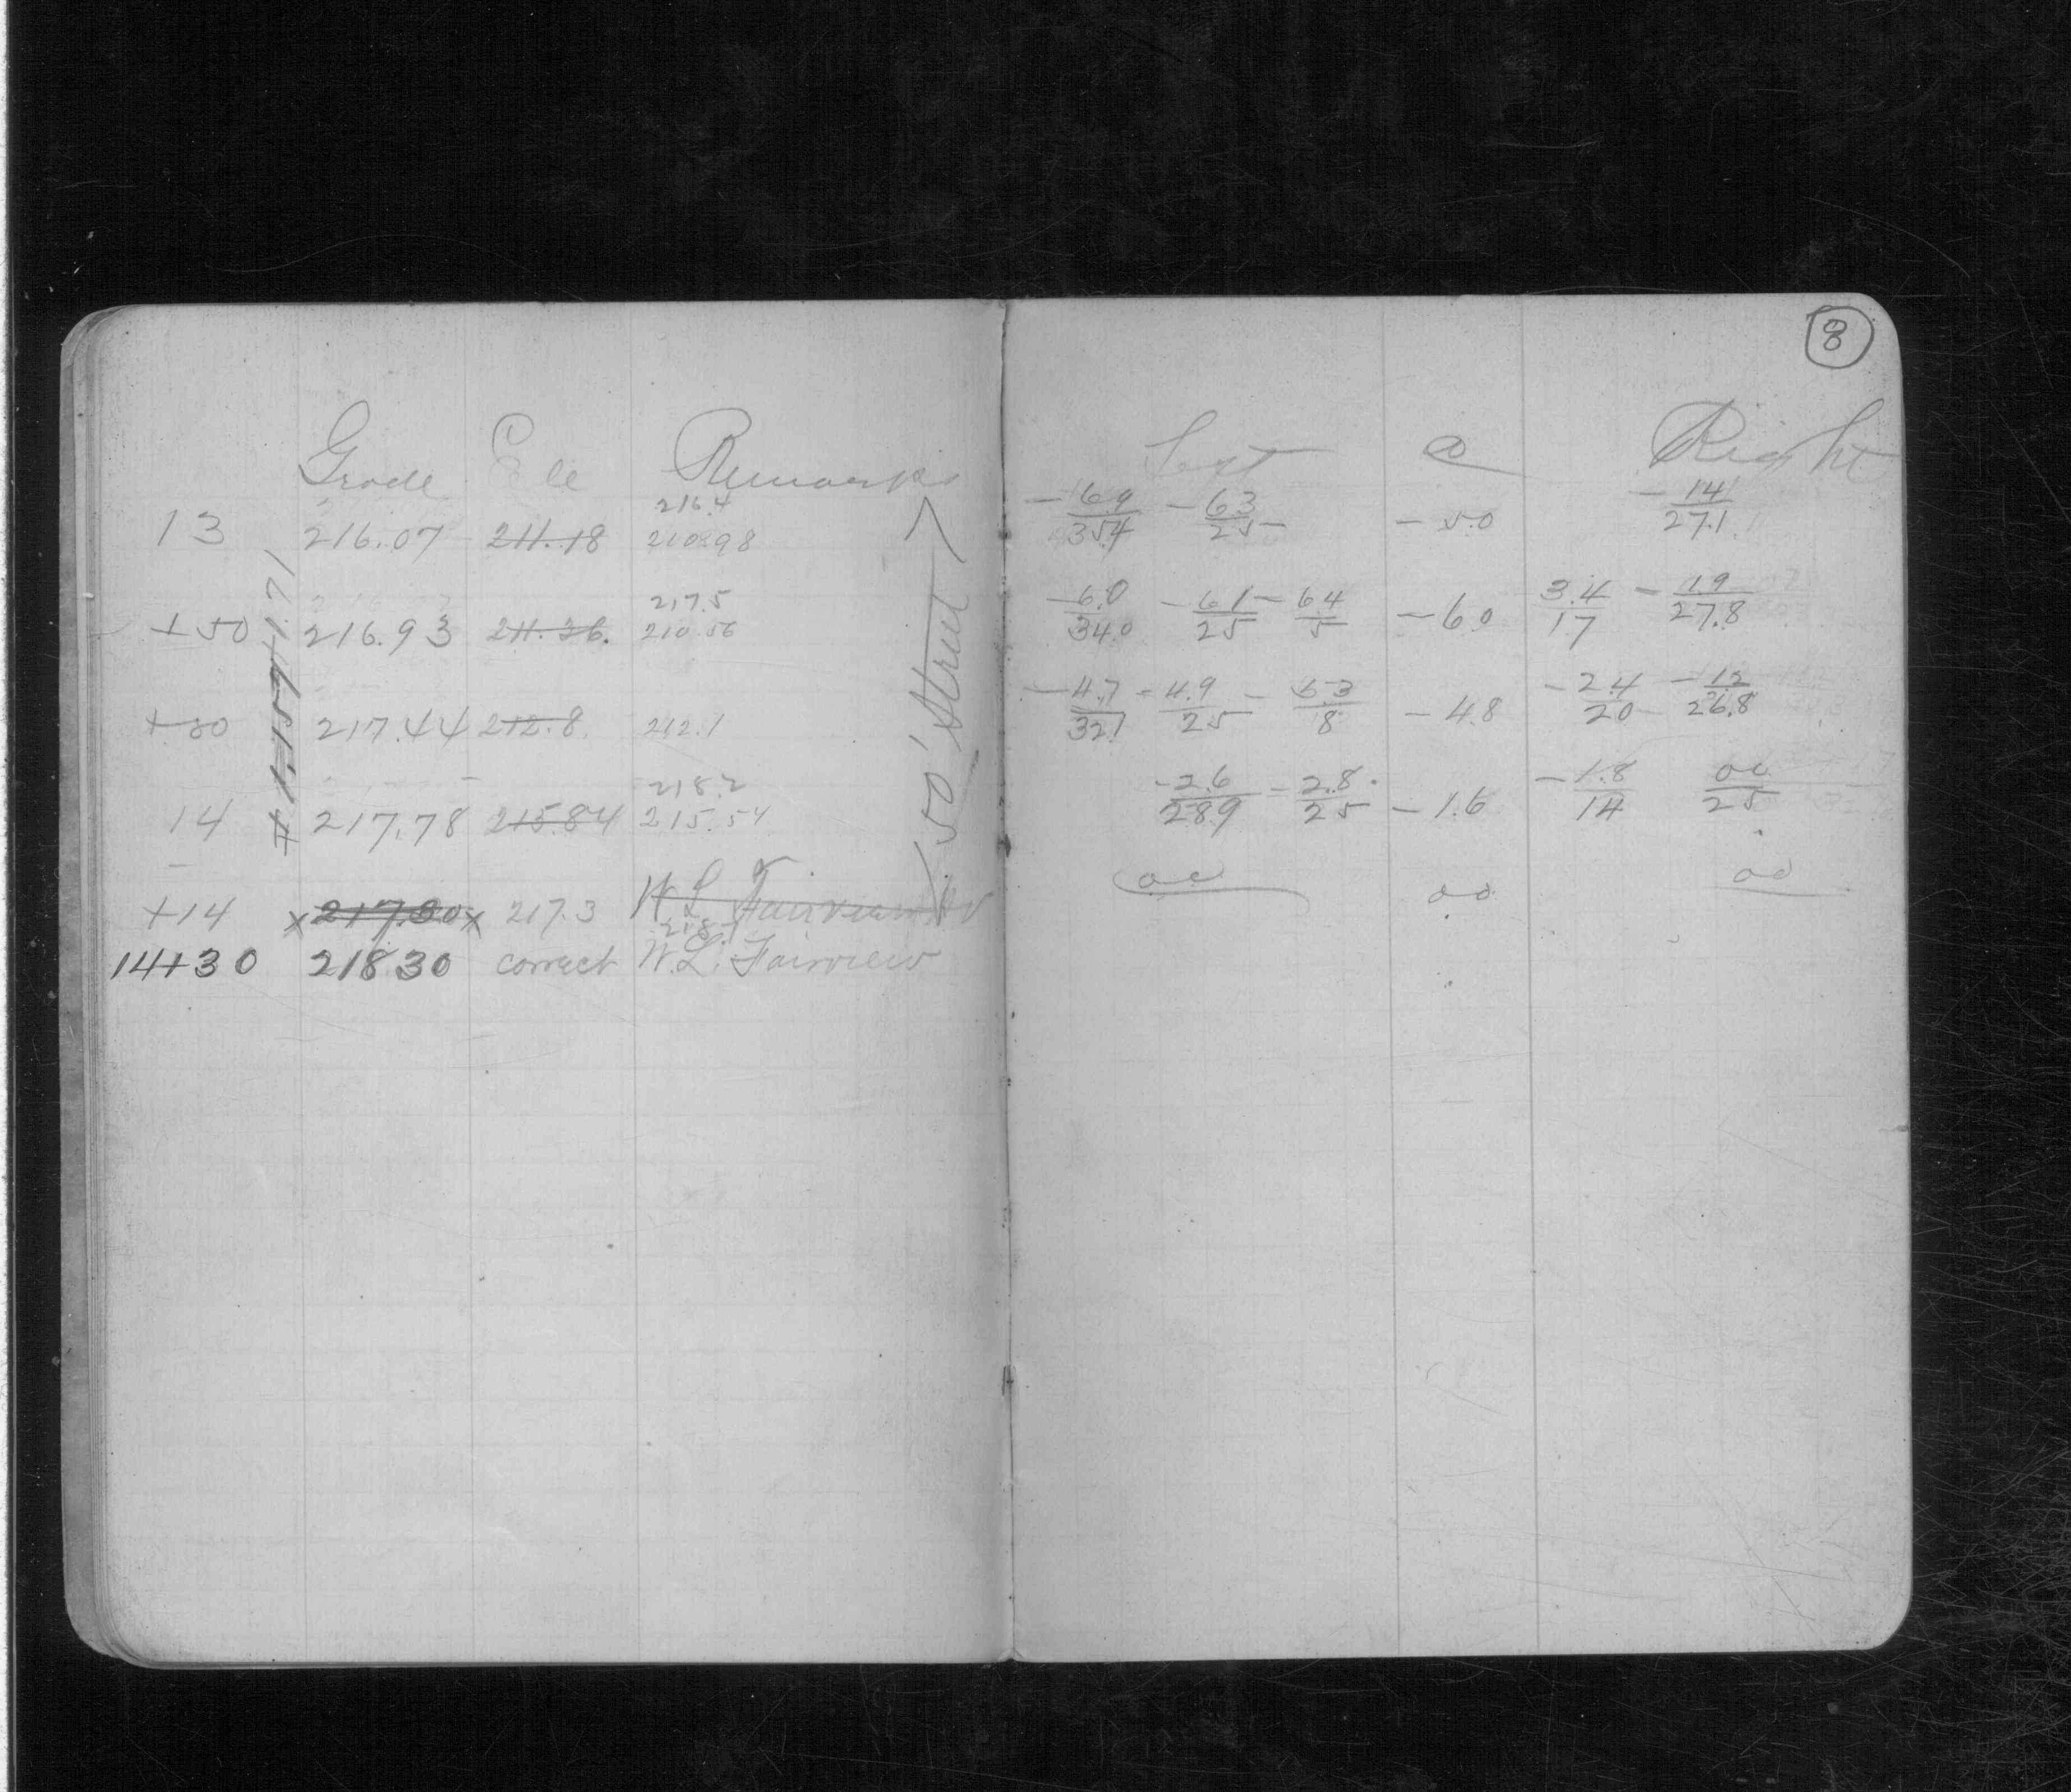 8
Grade Ele Remarks Left Right
216.4
13 216.07 211.18 210.98 - 6.9/35.4 - 6.3/25 - 5.0 - 1.4/27.1
217.5
+50 216.93 211.36. 210.56 - 6.0/34.0 - 6.1/25 - 6.4/5 - 6.0 3.4/17 - 1.9/27.8
+80 217.44 212.8 212.1 - 4.7/32.1 - 4.9/25 - 5.3/8 - 4.8 - 2.4/20 - 1.2/26.8
218.2
14 217.78 215.84 215.54 - 2.6/28.9 - 2.8/25 - 1.6 - 1.8/14 00/25
+14 x 217.30 x 217.3 W.L Fairview 00 00 00
14+30 218 30 correct W.L. Fairview
50' Street